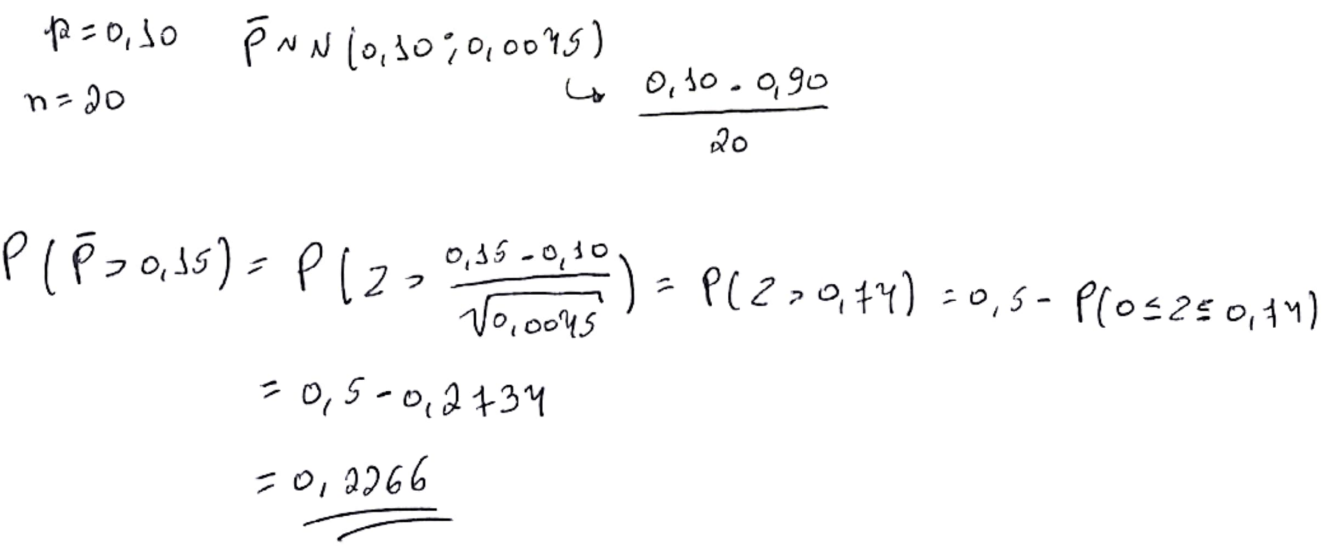 p = 0,10 P̄ ~ N (0,10 ; 0,0045)
n = 20 ↳ 0,10 . 0,90 / 20
P(P̄ > 0,15) = P(Z > (0,15 - 0,10) / √0,0045) = P(Z > 0,74) = 0,5 - P(0 ≤ Z ≤ 0,74)
= 0,5 - 0,2734
= 0,2266